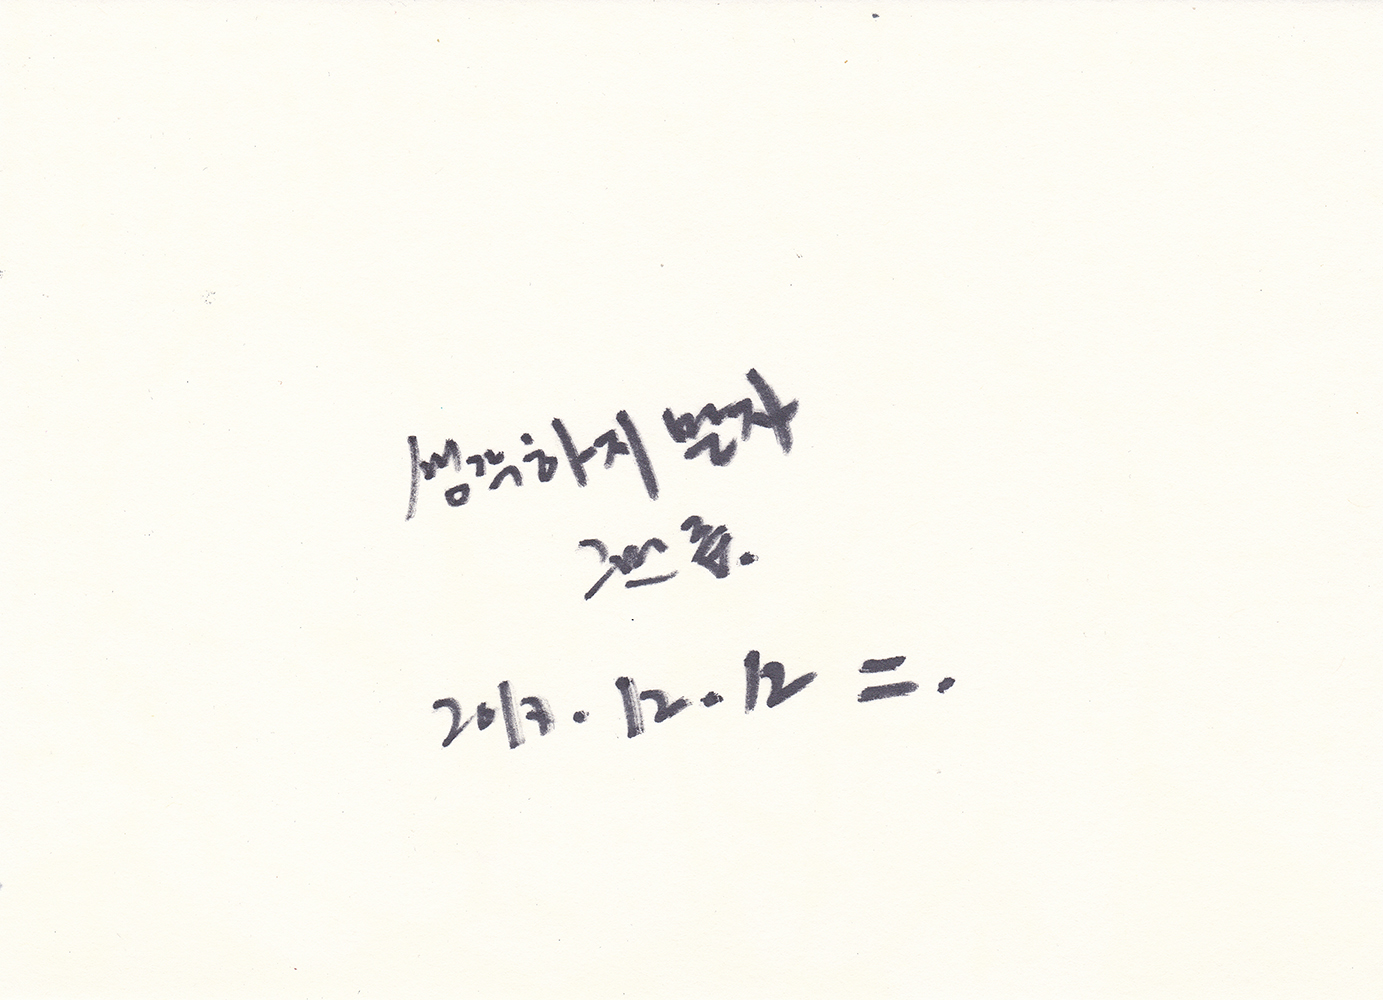 생각하지 말자
2017. 12. 12 =.